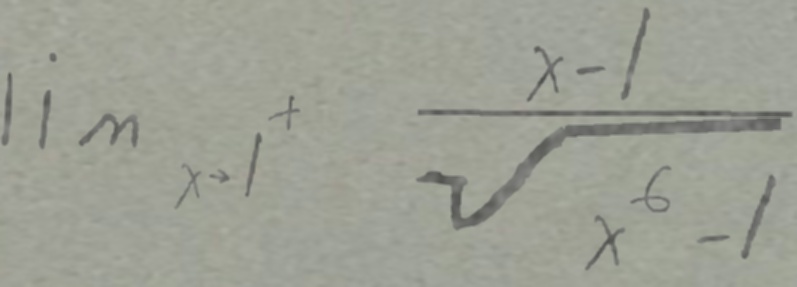 lim x→1⁺ (x-1)/√(x⁶-1)